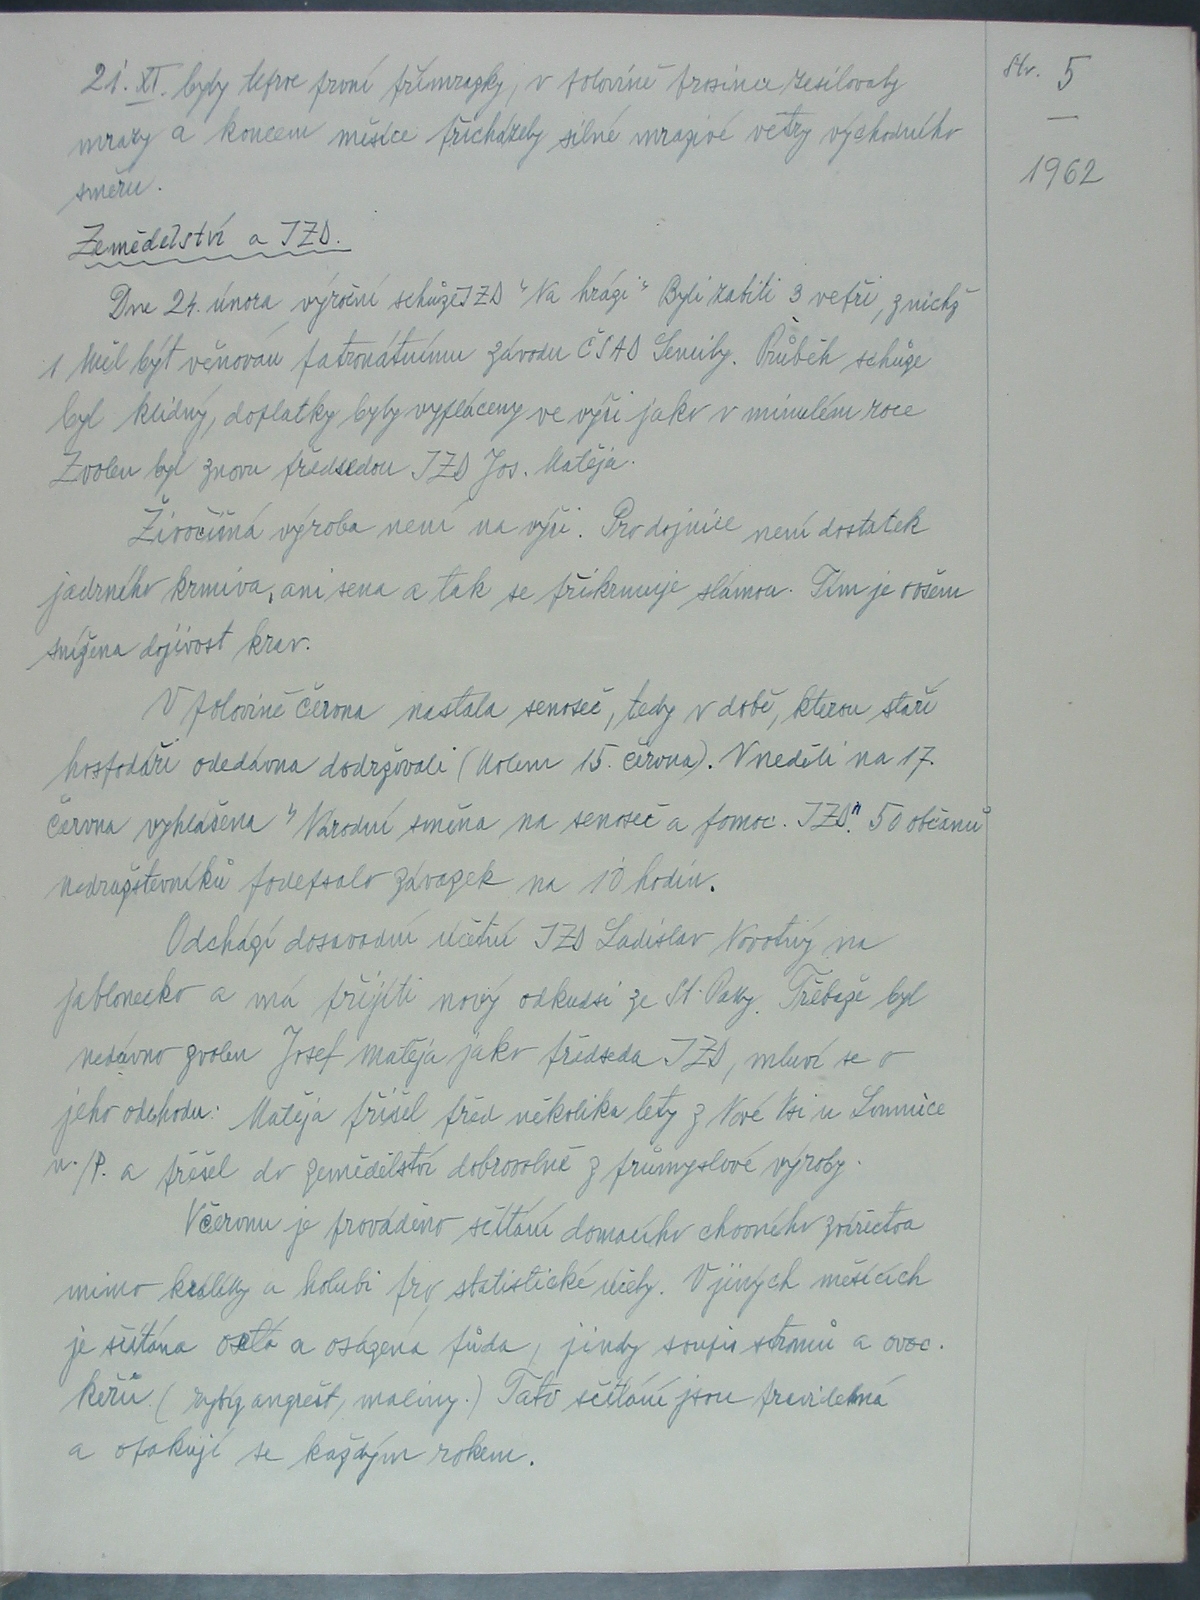 Str. 5
—
1962
21. XI. byly teprve první přímrazky, v polovině prosince zesilovaly
mrazy a koncem měsíce přicházely silné mrazivé větry východního
směru.
Zemědělství a JZD.
Dne 24. února výroční schůze JZD "Na hrázi" Byli zabiti 3 vepři, z nichž
1 měl být věnován patronátnímu závodu ČSAD Semily. Průběh schůze
byl klidný, doplatky byly vypláceny ve výši jako v minulém roce
Zvolen byl znovu předsedou JZD Jos. Matěja.
Živočišná výroba není na výši. Pro dojnice není dostatek
jadrného krmiva, ani sena a tak se přikrmuje slámou. Tím je ovšem
snížena dojivost krav.
V polovině června nastala senoseč, tedy v době, kterou staří
hospodáři odedávna dodržovali (kolem 15. června). V neděli na 17.
června vyhlášena "Národní směna na senoseč a pomoc. JZD." 50 občanů
nedružstevníků podepsalo závazek na 10 hodin.
Odchází dosavadní účetní JZD Ladislav Novotný na
jablonecko a má přijíti nový odkudsi ze St. Paky. Třebaže byl
nedávno zvolen Josef Matěja jako předseda JZD, mluví se o
jeho odchodu. Matěja přišel před několika lety z Nové Vsi u Lomnice
n./P. a přešel do zemědělství dobrovolně z průmyslové výroby.
V červnu je prováděno sčítání domácího chovného zvířectva
mimo králíky a holubi pro statistické účely. V jiných měsících
je sčítána osetá a osázená půda, jindy soupis stromů a ovoc.
keřů (rybíz angrešt, maliny.) Tato sčítání jsou pravidelná
a opakují se každým rokem.